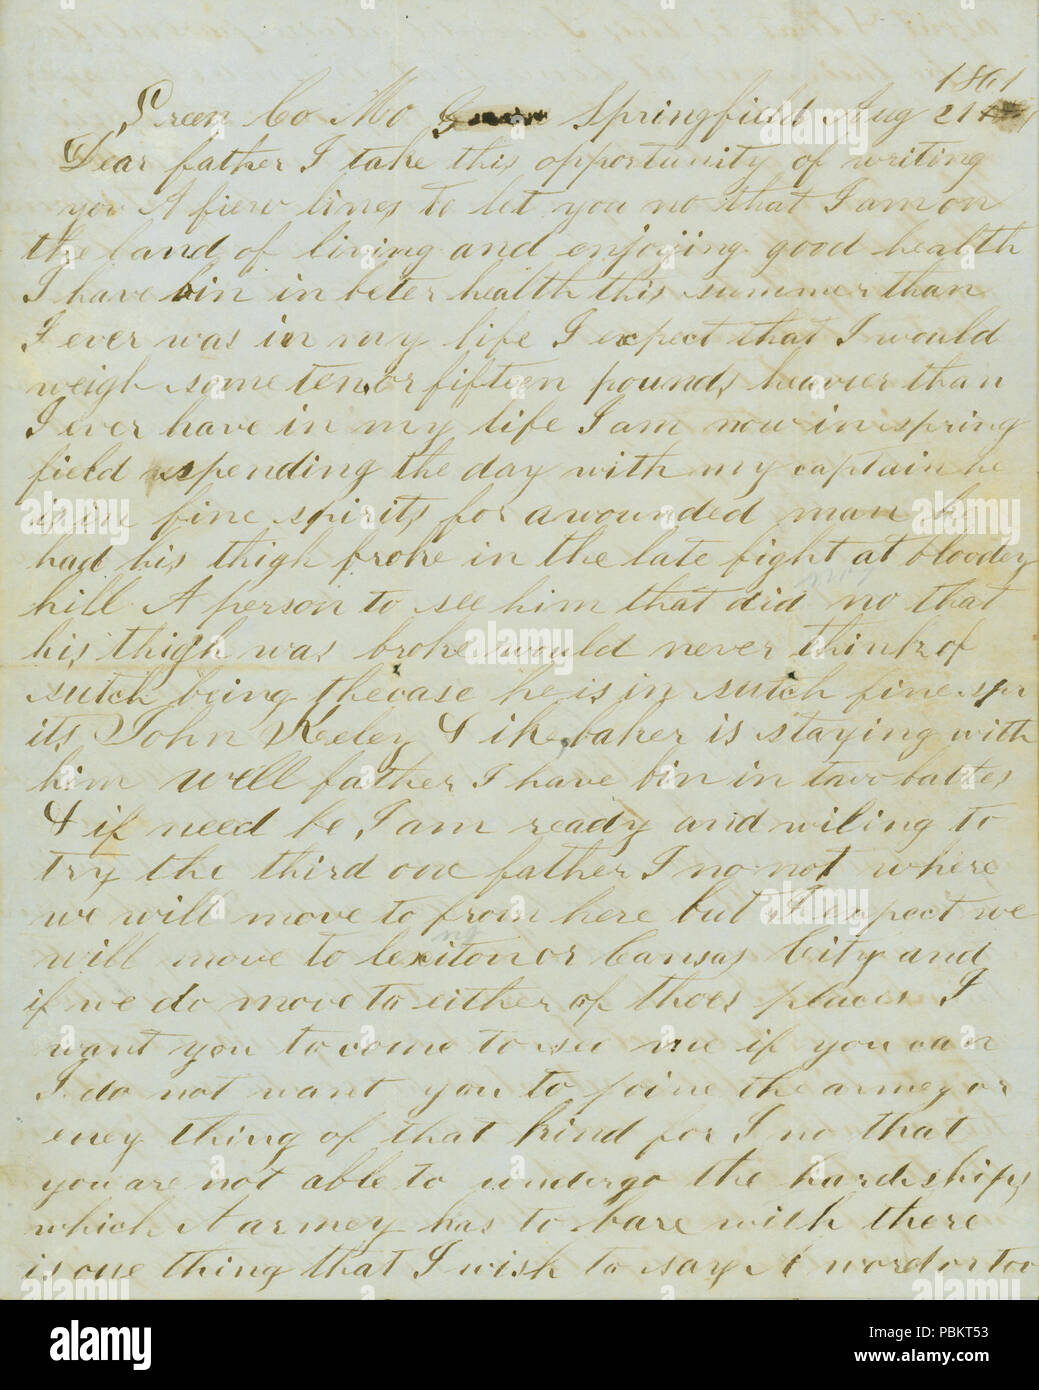 1861
Green Co Mo Springfield Aug 21
Dear father I take this opportunity of writing
you A fiew lines to let you no that I am on
the land of living and enjoying good health
I have bin in beter health this summer than
I ever was in my life I expect that I would
weigh some ten or fifteen pounds heavier than
I ever have in my life I am now in spring
field spending the day with my captain he
is in fine spirits for a wounded man he
had his thigh broke in the late fight at bloodey
hill A person to see him that did no that
his thigh was broke would never think of
sutch being the case he is in sutch fine spir
its John Keley & ike baker is staying with
him Well father I have bin in two battes
& if need be I am ready and wiling to
try the third one father I no not where
we will move to from here but I expect we
will move to lexiton or Cansas City and
if we do move to either of thoes places I
want you to come to see me if you can
I do not want you to joine the armey or
eney thing of that kind for I no that
you are not able to undergo the hardships
which A armey has to bare with there
is one thing that I wish to say A word or too
alamy stock photo
alamy
Image ID: PBKT53
www.alamy.com